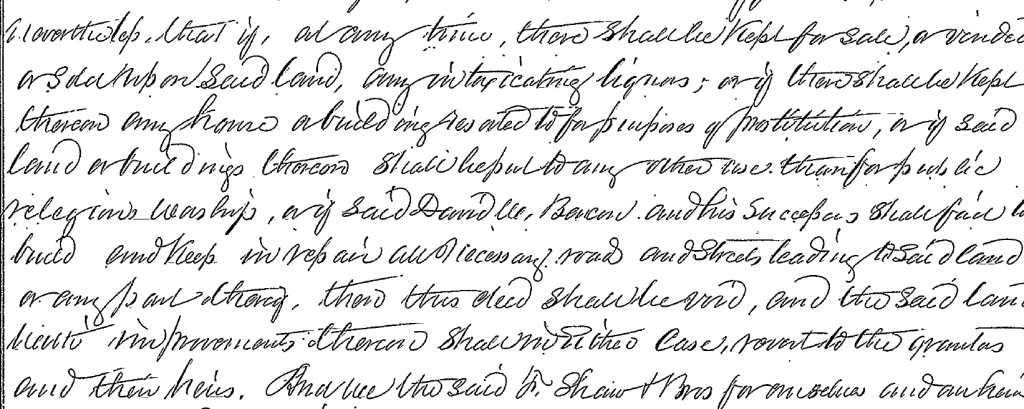 nevertheless, that if, at any time, there shall be kept for sale, or vended
or sold upon said land, any intoxicating liquors; or if there shall be kept
thereon any house or building resorted to for purposes of prostitution, or if said
land or buildings thereon shall be put to any other use than for public
religious worship, or if said Bacon and his Successors shall fail to
build and keep in repair all necessary road and Streets leading to said land
or any part thereof, then this deed shall be void, and the said land
with improvements thereon shall in either case, revert to the grantors
and their heirs. And we the said F. Shaw & Bros for ourselves and our heirs